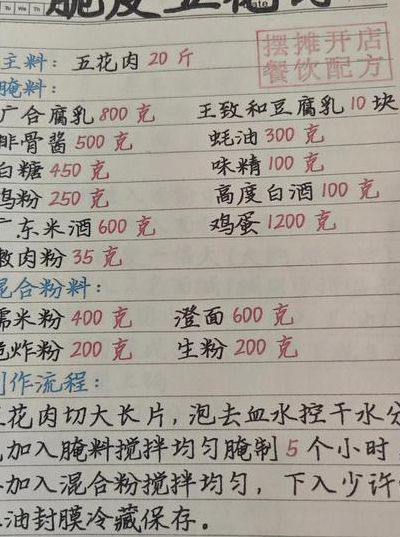 主料：五花肉 20 斤
摆摊开店
餐饮配方
腌料：
广合腐乳 800 克 王致和豆腐乳 10 块
排骨酱 500 克 蚝油 300 克
白糖 450 克 味精 100 克
鸡粉 250 克 高度白酒 100 克
广东米酒 600 克 鸡蛋 1200 克
嫩肉粉 35 克
混合粉料：
糯米粉 400 克 澄面 600 克
炸粉 200 克 生粉 200 克
制作流程：
五花肉切大长片，泡去血水控干水分
加入腌料搅拌均匀腌制 5 个小时
加入混合粉搅拌均匀，下入少许
油封膜冷藏保存。